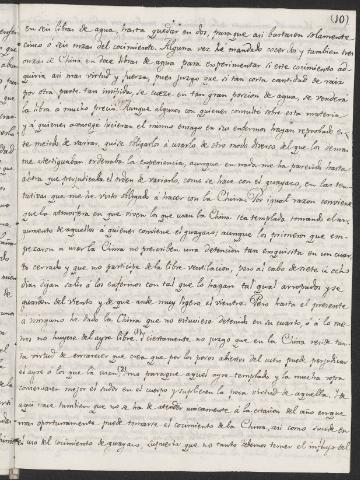 (10)
en seis libras de agua, hasta quedar en dos, para que asi bastaren solamente
cinco o seis onzas del cocimiento. Alguna vez he mandado cocer dos y tambien tres
onzas de China en doce libras de agua para experimentar si este cocimiento ad-
quiria asi mas virtud y fuerza, pues juzgo que si tan corta cantidad de raiz
por otra parte tan insipida, se cueze en tan gran porcion de agua, se vendera
la libra a mucho precio. Aunque algunos con quienes consulté sobre esta materia
y á quienes aconsejé hicieran el mismo ensayo en sus enfermos hayan reprobado es-
te método de variar, quise solo usarlo de otro modo diverso del que los demas
me atestiguaban ordenaba la experiencia, aunque en nada me ha parecido hasta
ahora que perjudicaba el orden de variarlo, como se hace con el guayaco, en las ten-
tativas que me he visto obligado á hacer con la China. Por igual razon conviene
que la atmosfera en que viven los que usan la China sea templada tomando el ar-
gumento de aquellos a quienes conviene el guayaco; aunque los primeros que em-
pezaron a usar la China no prescriben una detencion tan exquisita en un cuar-
to cerrado y que no participe de la libre ventilacion, pero al cabo de siete u ocho
dias dejan salir a los enfermos con tal que lo hagan tal qual arropados y se
guarden del viento y de que ande muy ligero el vientre. Pero hasta el presente
a ninguno he dado la China que no estuviese detenido en su cuarto, o á lo me-
nos no huyese del ayre libre. Y ciertamente no juzgo que en la China reside tan-
ta virtud de enrarecer que crea que por los poros abiertos del cutis puede perjudicar
el ayre á los que la usan (2) mas para que aquel ayre templado y la mucha ropa
conserven mejor el sudor en el cuerpo y suplieren la poca virtud de aquella. De
aqui nace tambien que no se ha de atender unicamente, á la estacion del año en que
mas oportunamente puede tomarse el cocimiento de la China, asi como sucede en
el uso del cocimiento de guayaco, supuesto que no tanto debemos temer el influjo del